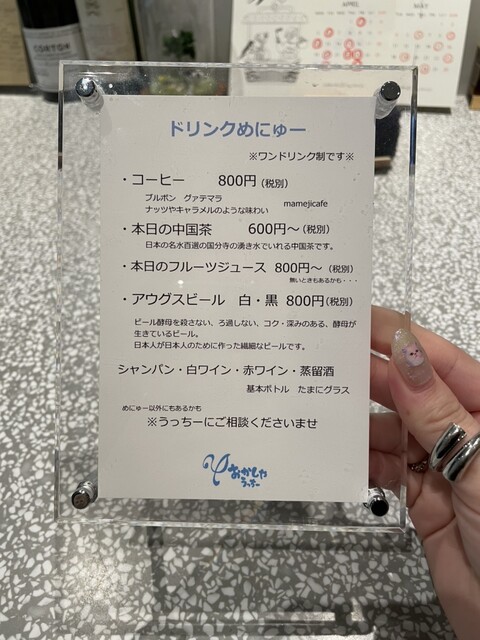 CORTON
APRIL
MAY
ドリンクめにゅー
※ワンドリンク制です※
・コーヒー 800円（税別）
ブルボン グァテマラ
ナッツやキャラメルのような味わい mamejicafe
・本日の中国茶 600円～（税別）
日本の名水百選の国分寺の湧き水でいれる中国茶です。
・本日のフルーツジュース 800円～（税別）
無いときもあるかも・・・
・アウグスビール 白・黒 800円（税別）
ビール酵母を殺さない、ろ過しない、コク・深みのある、酵母が
生きているビール。
日本人が日本人のために作った繊細なビールです。
シャンパン・白ワイン・赤ワイン・蒸留酒
基本ボトル たまにグラス
めにゅー以外にもあるかも
※うっちーにご相談くださいませ
おかしや
うっちー